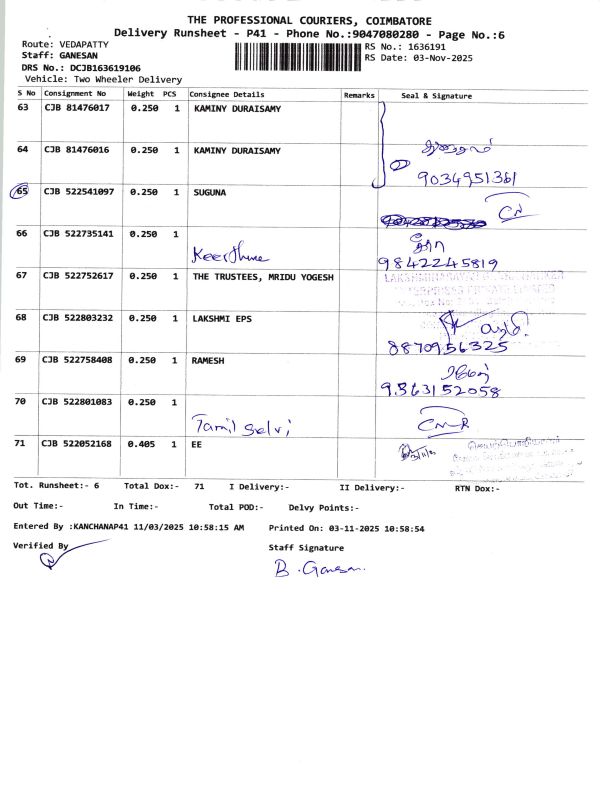 THE PROFESSIONAL COURIERS, COIMBATORE
Delivery Runsheet - P41 - Phone No.:9047080280 - Page No.:6
Route: VEDAPATTY
RS No.: 1636191
Staff: GANESAN
RS Date: 03-Nov-2025
DRS No.: DCJB163619106
Vehicle: Two Wheeler Delivery
S No Consignment No Weight PCS Consignee Details Remarks Seal & Signature
63 CJB 81476017 0.250 1 KAMINY DURAISAMY
64 CJB 81476016 0.250 1 KAMINY DURAISAMY
9034951361
65 CJB 522541097 0.250 1 SUGUNA
CN
66 CJB 522735141 0.250 1
Keerthune
9842245819
67 CJB 522752617 0.250 1 THE TRUSTEES, MRIDU YOGESH
68 CJB 522803232 0.250 1 LAKSHMI EPS
8870956325
69 CJB 522758408 0.250 1 RAMESH
9363152058
70 CJB 522801083 0.250 1
Tamil Selvi
71 CJB 522052168 0.405 1 EE
Tot. Runsheet:- 6 Total Dox:- 71 I Delivery:- II Delivery:- RTN Dox:-
Out Time:- In Time:- Total POD:- Delvy Points:-
Entered By :KANCHANAP41 11/03/2025 10:58:15 AM Printed On: 03-11-2025 10:58:54
Verified By Staff Signature
B. Ganesan.